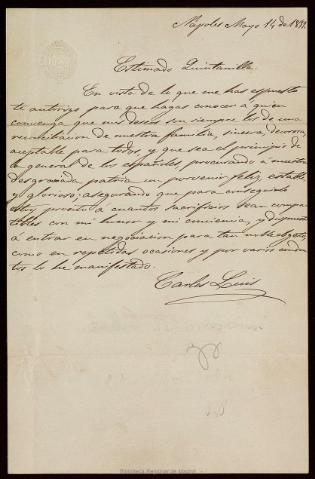 Nápoles Mayo 14 de 1859.
Estimado Quintanilla.
En vista de lo que me has espuesto
te autorizo para que hagas conocer a quien
convenga que mis deseos son siempre los de una
reconciliacion de nuestra familia, sincera, decorosa,
aceptable para todos y que sea el principio de
la general de los españoles procurando a nuestra
desgraciada patria un porvenir feliz, estable
y glorioso; asegurando que para conseguirlo
estoy pronto a cuantos sacrificios sean compa-
tibles con mi honor y mi conciencia, y dispuesto
á entrar en negociacion para tan noble objeto,
como en repetidas ocasiones y por varios conduc-
tos lo he manifestado.
Carlos Luis
Biblioteca Regional de Madrid